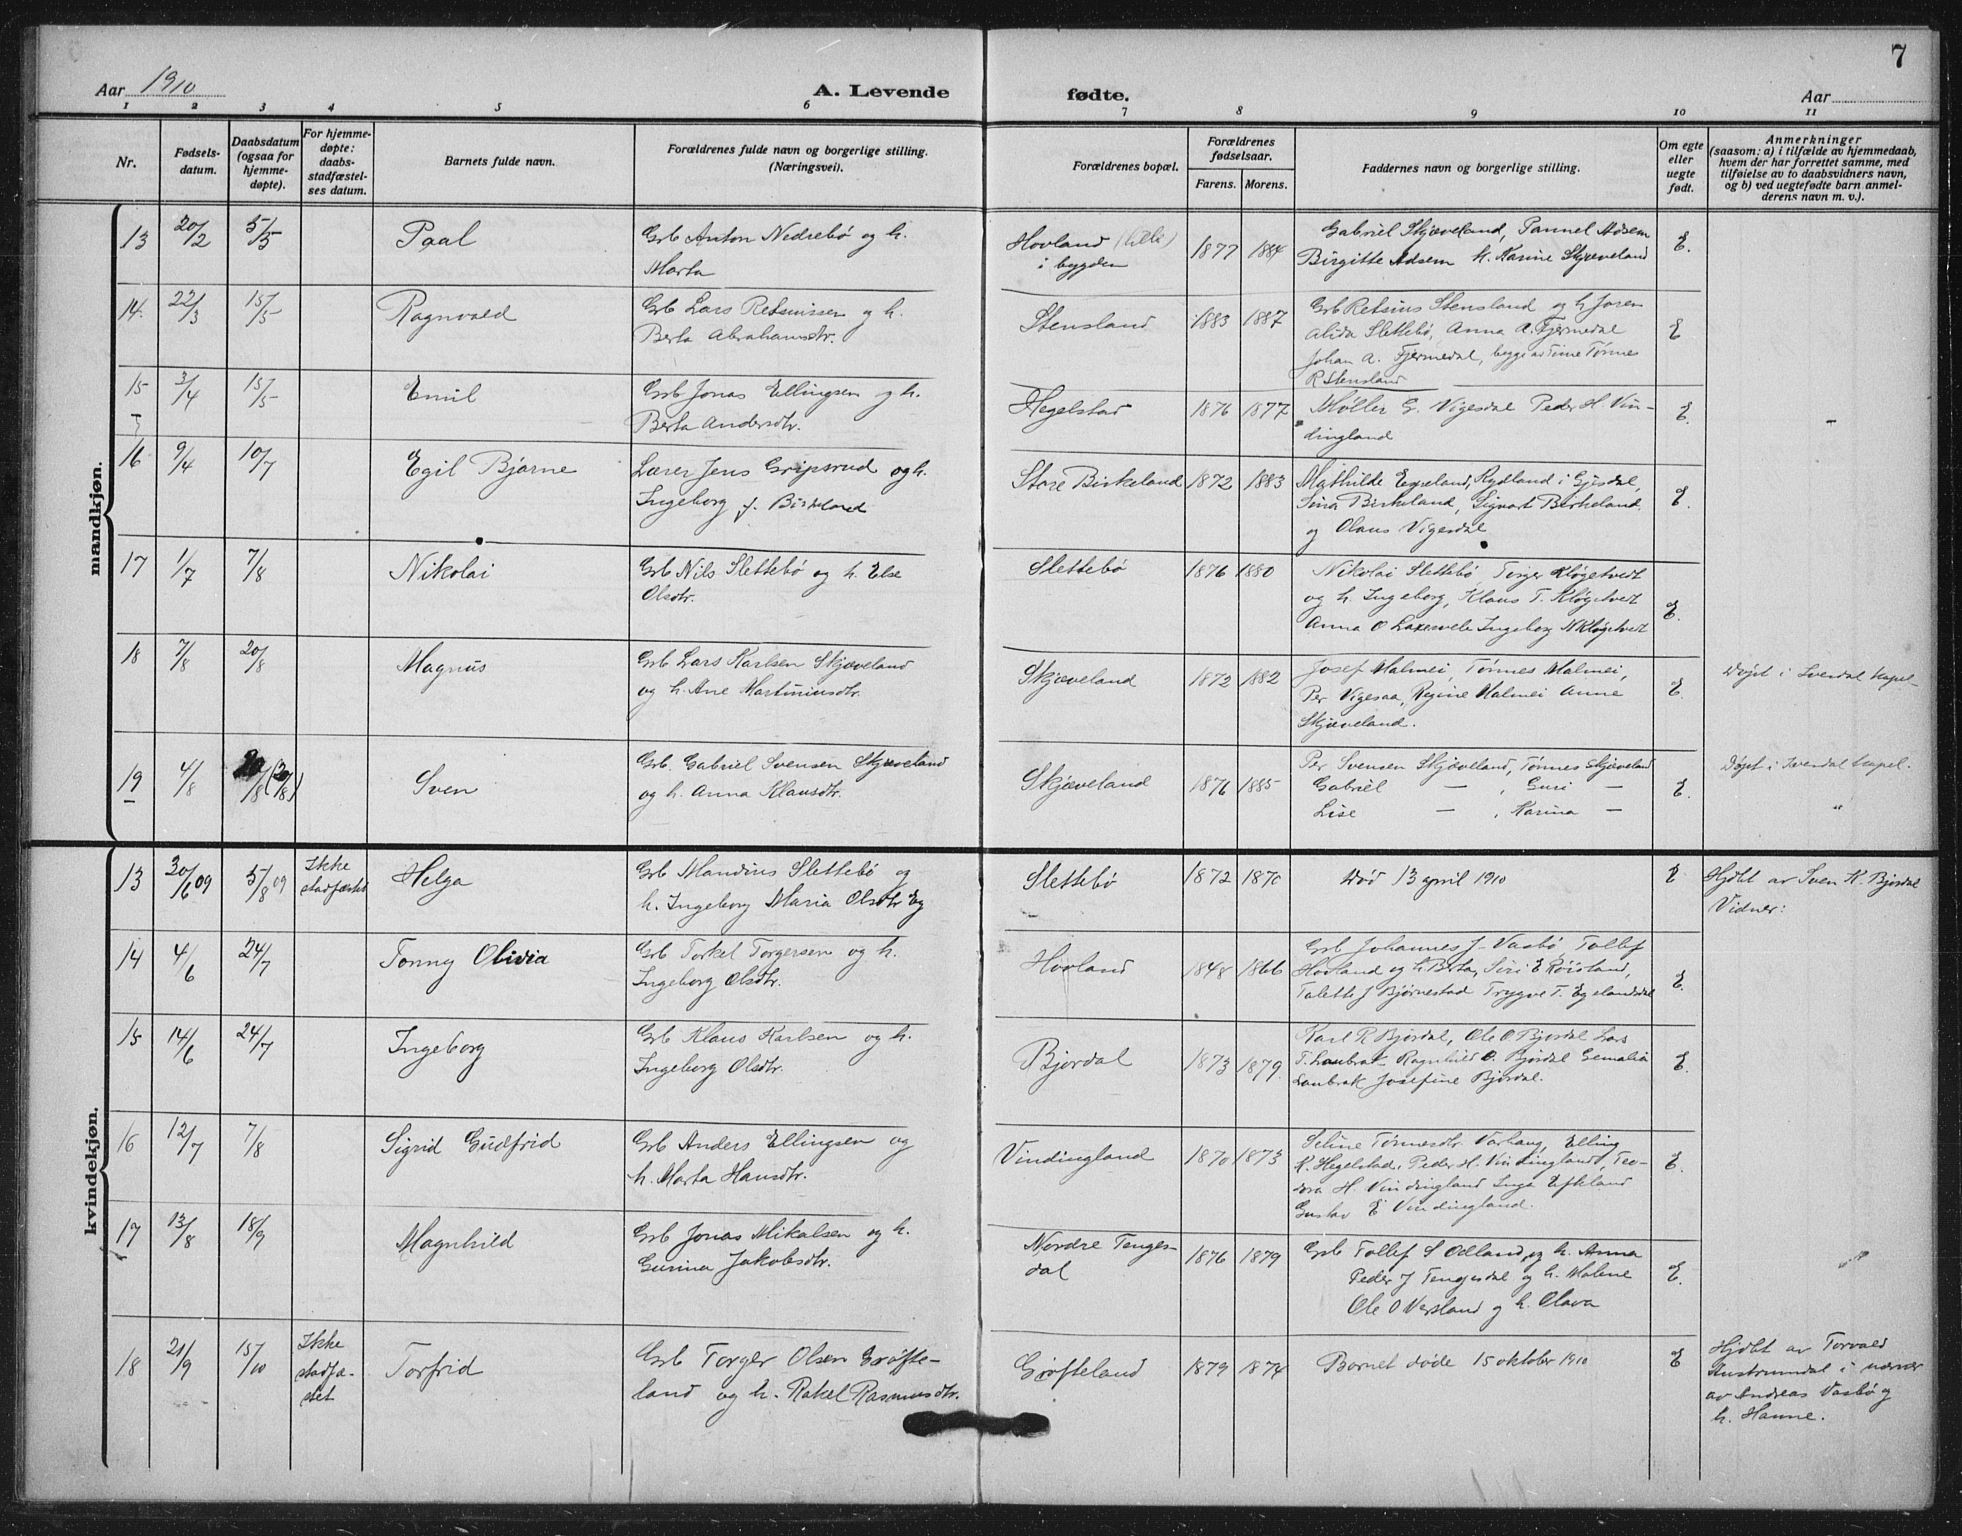 7
Aar 1910 A. Levende fødte. Aar
1 2 3 4 5 6 7 8 9 10 11
Nr.
Fødsels-
datum.
Daabsdatum
(ogsaa for
hjemme-
døpte).
For hjemme-
døpte:
daabs-
stadfæstel-
ses datum.
Barnets fulde navn.
Forældrenes fulde navn og borgerlige stilling.
(Næringsvei).
Forældrenes bopæl.
Forældrenes
fødselsaar.
Farens. Morens.
Faddernes navn og borgerlige stilling.
Om egte
eller
uegte
født.
Anmerkninger
(saasom: a) i tilfælde av hjemmedaab,
hvem der har forrettet samme, med
tilføielse av to daabsvidners navn,
og b) ved uegtefødte barn anmel-
derens navn m. v.).
mandkjøn.
13 20/2 5/5 Paal
Grb Anton Nedrebø og h.
Marta
Hovland (lille)
i bygden
1877 1884
Gabriel Skjæveland,
Birgitte h. Karine Skjæveland
E.
14. 22/3 15/5 Ragnvald
Grb Lars Retsiussen og h.
Berta Abrahamsdtr.
Stensland
1883 1887
Grb Retsius Stensland og h Joren
Alida Slettebø, Anna A. Fjermedal
Johan A. Fjermedal, Tønnes
R Stensland
E
15 3/4 15/5 Emil
Grb Jonas Ellingsen og h.
Berta Andersdtr.
Hegelstad
1876 1877
Møller G. Vigesdal Peder H. Vin-
dingland
E.
16 9/4 10/7 Egil Bjarne
Lærer Jens Gripsrud og h.
Ingeborg f. Birkeland
Store Birkeland
1872 1883
Mathilde Espeland, Rydland i Gjesdal,
Sina Birkeland, Sigvart Birkeland
og Olaus Vigesdal
E.
17 1/7 7/8 Nikolai
Grb Nils Slettebø og h. Else
Olsdtr.
Slettebø
1876 1880
Nikolai Slettebø, Torger Kløgetvedt
og h. Ingeborg, Klaus T. Kløgetvedt
Anna O Laxesvele Ingeborg N Kløgetvedt
E.
18 7/8 20/8 Magnus
Grb Lars Karlsen Skjæveland
og h. Ane Martiniusdtr.
Skjæveland
1872 1882
Josef Malmei, Tønnes Malmei,
Per Vigesaa, Regine Malmei Anne
Skjæveland.
E.
Døpt i Ivesdal kapel
19 4/8 20/8 (20/8) Sven
Grb. Gabriel Svensen Skjæveland
og h. Anna Klausdtr.
Skjæveland
1876 1885
Per Svensen Skjæveland, Tønnes Skjæveland
Gabriel — , Guri —
Lise — , Karina —
E.
Døpt i Ivesdal kapel.
"
kvindekjøn.
13 30/6 09 5/8 09
Ikke
stadfæstet
Helga
Grb Mandius Slettebø og
h. Ingeborg Maria Olsdtr Eg
Slettebø
1872 1870
Død 13 april 1910
E
Hjdbt av Sven K. Bjordal
Vidner:
14 4/6 24/7 Tonny Olivia
Grb Torkel Torgersen og h.
Ingeborg Olsdtr.
Hovland
1848 1866
Grb Johannes J. Vasbø, Tollef
Hovland og h Berta, Siri E Röisland,
Talette J Bjørnestad Trygve T. Egelandsdal
E.
15 14/6 24/7 Ingeborg
Grb Klaus Karlsen og h.
Ingeborg Olsdtr.
Bjordal
1873 1879.
Karl R Bjordal, Ole O Bjordal Lars
T. Laubrak Ragnhild O. Bjordal
Laubrak Josefine Bjordal.
E.
16 12/7 7/8 Sigrid Gudfrid
Grb Anders Ellingsen og
h. Marta Hansdtr.
Vindingland
1870 1873
Seline Tønnesdtr. Varhaug, Elling
K. Hegelstad, Peder H. Vindingland, Teo-
dora H. Vindingland Inga Efteland
Gustav E Vindingland.
E.
17 13/8 18/9 Magnhild
Grb Jonas Mikalsen og h.
Gurina Jakobsdtr.
Nordre Tenges-
dal
1876 1879
Grb Tollef S Odland, og h. Anna
Peder J Tengesdal og h. Malene
Ole O Versland og h. Olava
E.
18 21/9 15/10
Ikke
stadfæ-
stet
Torfrid
Grb Torger Olsen Grøfte-
land og h. Rakel Rasmusdtr.
Grøfteland
1879 1874
Barnet døde 15 oktober 1910
E
Hjdbt av Torvald
Austrumdal i nærvær
av Andreas Vasbø og
h. Hanne.